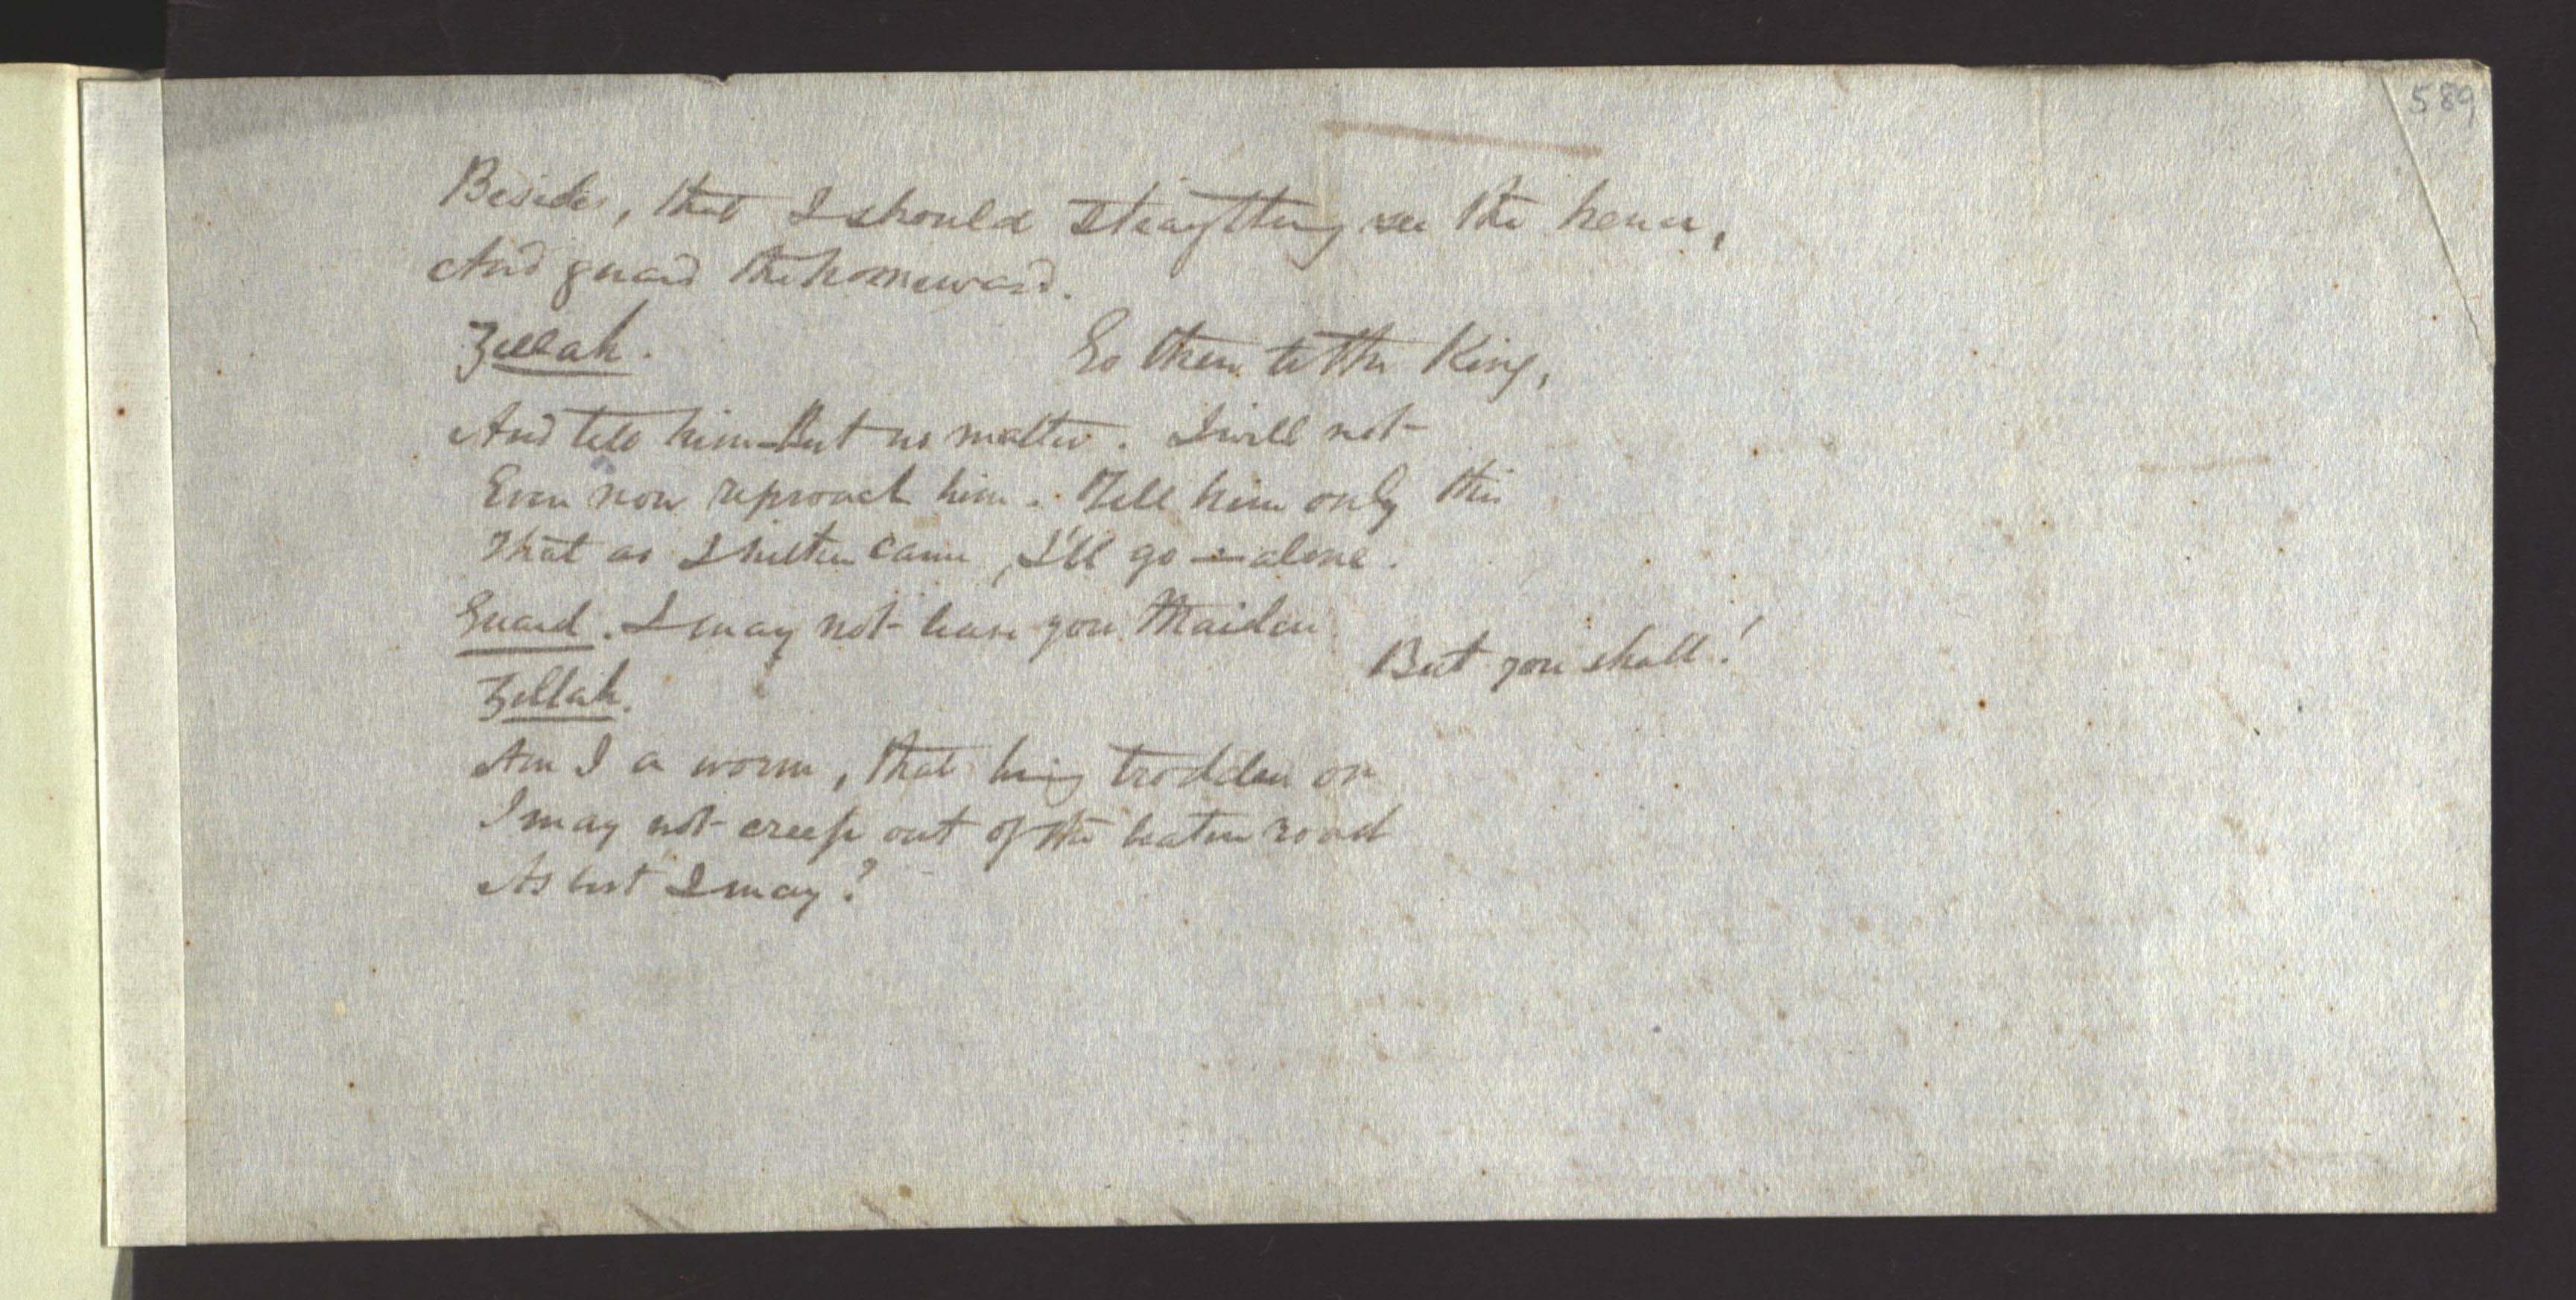 589
Besides, that I should straightway see thee hence,
And guard thee homeward.
Zillah. Go then to the King,
And tell him—But no matter. I will not
Even now reproach him. Tell him only this
That as I hither came, I'll go—alone.
Guard. I may not leave you Maiden.
But you shall!
Zillah.
Am I a worm, that being trodden on
I may not creep out of the beaten road
As best I may?